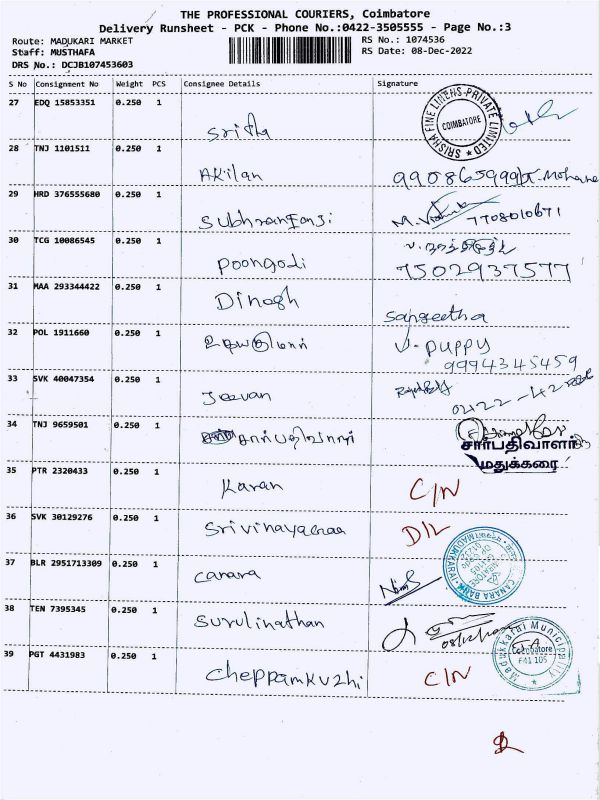 THE PROFESSIONAL COURIERS, Coimbatore
Delivery Runsheet - PCK - Phone No.:0422-3505555 - Page No.:3
Route: MADUKARI MARKET
RS No.: 1074536
Staff: MUSTHAFA
RS Date: 08-Dec-2022
DRS No.: DCJB107453603
S No Consignment No Weight PCS Consignee Details Signature
27 EDQ 15853351 0.250 1
Sritha
SRISHA FINE LINENS PRIVATE LIMITED
COIMBATORE
28 TNJ 1101511 0.250 1
Akilan
29 HRD 376555680 0.250 1
Subhranfanji
7708010671
30 TCG 10086545 0.250 1
Poongodi
7502937577
31 MAA 293344422 0.250 1
Dinesh
Sangeetha
32 POL 1911660 0.250 1
உதயகுமார்
V. PUPPY
9994345459
33 SVK 40047354 0.250 1
Jeevan
34 TNJ 9659501 0.250 1
சார்பதிவாளர்
சார்பதிவாளர்
மதுக்கரை
35 PTR 2320433 0.250 1
Karan
C/N
36 SVK 30129276 0.250 1
D/L
37 BLR 2951713309 0.250 1
Canara
CANARA BANK
38 TEN 7395345 0.250 1
Surulinathan
39 PGT 4431983 0.250 1
Cheppamkuzhi
C/N
Madukkarai Municipality
Coimbatore
641 105